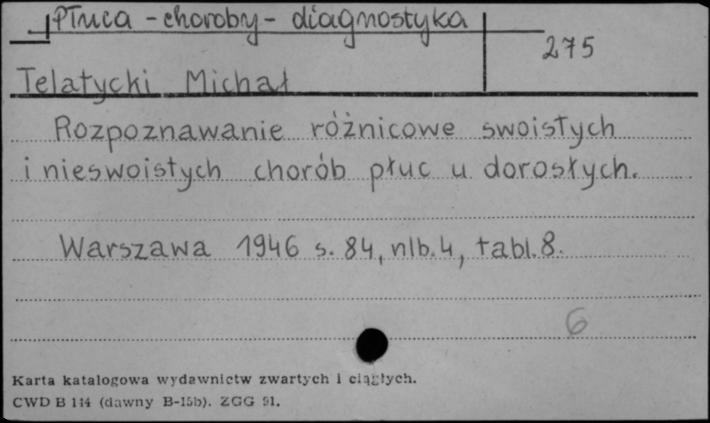 Płuca - choroby - diagnostyka
275
Telatycki Michał
Rozpoznawanie różnicowe swoistych
i nieswoistych chorób płuc u dorosłych.
Warszawa 1946 s. 84, nlb. 4, tabl. 8.
6
Karta katalogowa wydawnictw zwartych i ciągłych.
CWD B 144 (dawny B-15b). ZGG 51.